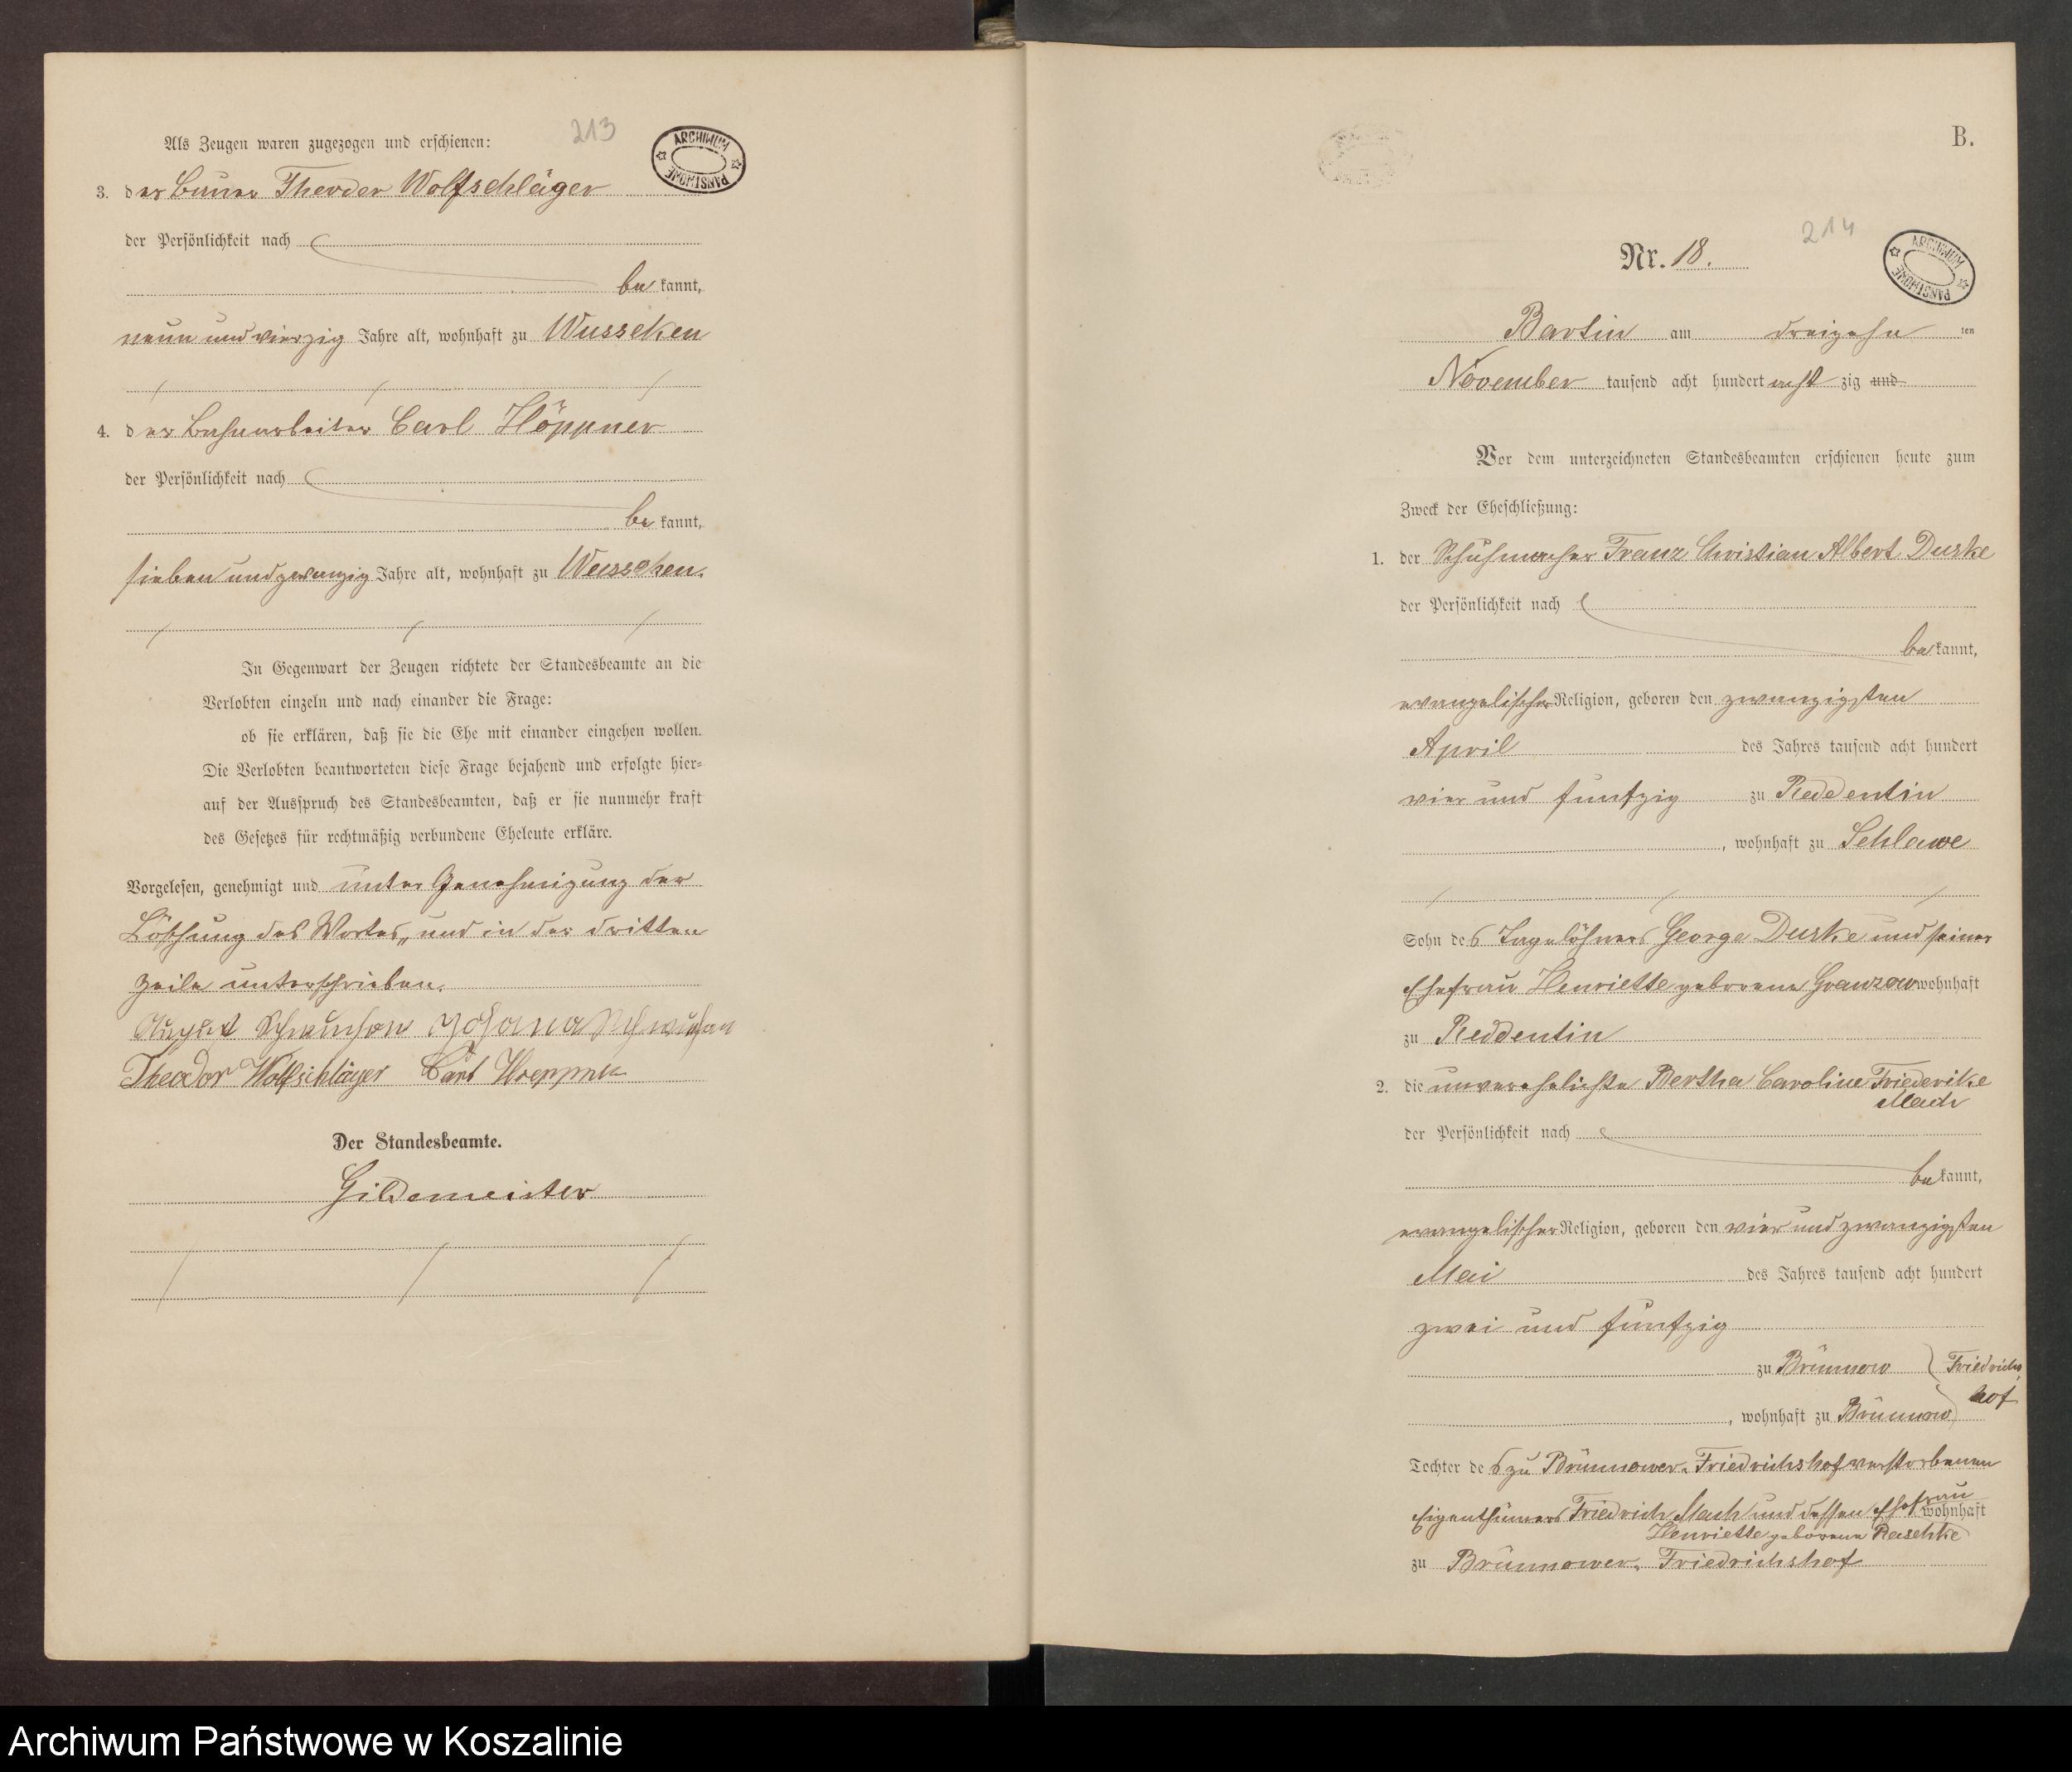 213
ARCHIWUM PAŃSTWOWE
Als Zeugen waren zugezogen und erschienen:
3. der Bauer Theodor Wolfschläger
der Persönlichkeit nach
bekannt,
neun und vierzig Jahre alt, wohnhaft zu Wusseken
4. der Bahnarbeiter Carl Höppner
der Persönlichkeit nach
bekannt,
sieben und zwanzig Jahre alt, wohnhaft zu Wusseken.
In Gegenwart der Zeugen richtete der Standesbeamte an die
Verlobten einzeln und nach einander die Frage:
ob sie erklären, daß sie die Ehe mit einander eingehen wollen.
Die Verlobten beantworteten diese Frage bejahend und erfolgte hier-
auf der Ausspruch des Standesbeamten, daß er sie nunmehr kraft
des Gesetzes für rechtmäßig verbundene Eheleute erkläre.
Vorgelesen, genehmigt und unter Genehmigung der
Löschung des Wortes „und in der dritten
Zeile unterschrieben.
August
Theodor Wolfschläger Carl Hoeppner
Der Standesbeamte.
Gildemeister
B.
214
ARCHIWUM PAŃSTWOWE
Nr. 18.
Bartin am dreizehn ten
November tausend acht hundert acht zig und
Vor dem unterzeichneten Standesbeamten erschienen heute zum
Zweck der Eheschließung:
1. der Schuhmacher Franz Christian Albert Duske
der Persönlichkeit nach
bekannt,
evangelischer Religion, geboren den zwanzigsten
April des Jahres tausend acht hundert
vier und fünfzig zu Reddentin
, wohnhaft zu Schlawe
Sohn des Tagelöhners George Duske und seiner
Ehefrau Henriette geborene Granzow wohnhaft
zu Reddentin
2. die unverehelichte Bertha Caroline Friederike
Mach
der Persönlichkeit nach
bekannt,
evangelischer Religion, geboren den vier und zwanzigsten
Mai des Jahres tausend acht hundert
zwei und fünfzig
zu Brünnow Friedrichs
hof
, wohnhaft zu Brünnow
Tochter des zu Brünnower-Friedrichshof verstorbenen
Eigenthümers Friedrich Mach und dessen Ehefrau wohnhaft
Henriette geborene Raschke
zu Brünnower-Friedrichshof
Archiwum Państwowe w Koszalinie